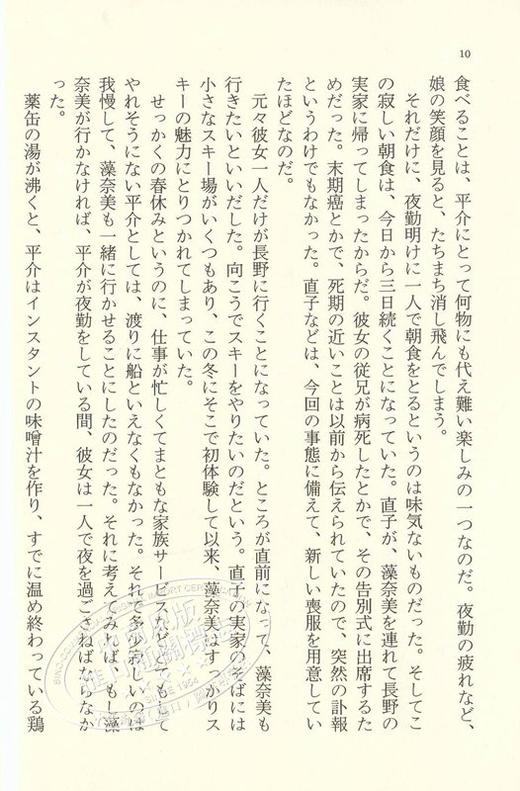 10
食べることは、平介にとって何物にも代え難い楽しみの一つなのだ。夜勤の疲れなど、
娘の笑顔を見ると、たちまち消し飛んでしまう。
それだけに、夜勤明けに一人で朝食をとるというのは味気ないものだった。そしてこ
の寂しい朝食は、今日から三日続くことになっていた。直子が、藻奈美を連れて長野の
実家に帰ってしまったからだ。彼女の従兄が病死したとかで、その告別式に出席するた
めだった。末期癌とかで、死期の近いことは以前から伝えられていたので、突然の訃報
というわけでもなかった。直子などは、今回の事態に備えて、新しい喪服を用意してい
たほどなのだ。
元々彼女一人だけが長野に行くことになっていた。ところが直前になって、藻奈美も
行きたいといいだした。向こうでスキーをやりたいのだという。直子の実家のそばには
小さなスキー場がいくつもあり、この冬にそこで初体験して以来、藻奈美はすっかりス
キーの魅力にとりつかれてしまっていた。
せっかくの春休みというのに、仕事が忙しくてまともな家族サービスなどとてもして
やれそうにない平介としては、渡りに船といえなくもなかった。それで多少寂しいのは
我慢して、藻奈美も一緒に行かせることにしたのだった。それに考えてみれば、もし藻
奈美が行かなければ、平介が夜勤をしている間、彼女は一人で夜を過ごさねばならなか
った。
薬缶の湯が沸くと、平介はインスタントの味噌汁を作り、すでに温め終わっている鶏